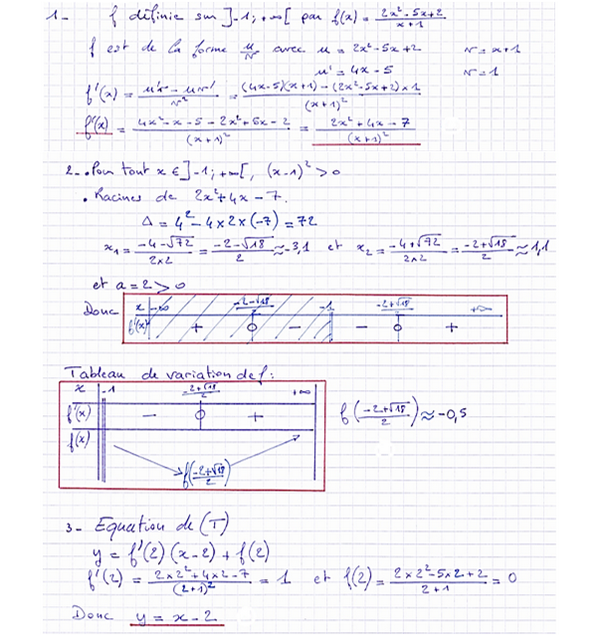 1- f définie sur ]-1; +∞[ par f(x) = (2x²-5x+2)/(x+1)
f est de la forme u/v avec u = 2x²-5x+2 v = x+1
u' = 4x-5 v' = 1
f'(x) = (u'v - uv')/v² = ((4x-5)(x+1) - (2x²-5x+2)×1)/(x+1)²
f'(x) = (4x²-x-5-2x²+5x-2)/(x+1)² = (2x²+4x-7)/(x+1)²
2-. Pour tout x ∈ ]-1; +∞[, (x-1)² > 0
. Racines de 2x²+4x-7.
Δ = 4²-4×2×(-7) = 72
x₁ = (-4-√72)/(2×2) = (-2-√18)/2 ≈ -3,1 et x₂ = (-4+√72)/(2×2) = (-2+√18)/2 ≈ 1,1
et a = 2 > 0
Donc
x -∞ (-2-√18)/2 -1 (-2+√18)/2 +∞
f'(x) + 0 - - 0 +
Tableau de variation de f:
x -1 (-2+√18)/2 +∞
f'(x) - 0 +
f(x) f((-2+√18)/2)
f((-2+√18)/2) ≈ -0,5
3- Equation de (T)
y = f'(2) (x-2) + f(2)
f'(2) = (2×2²+4×2-7)/(2+1)² = 1 et f(2) = (2×2²-5×2+2)/(2+1) = 0
Donc y = x-2